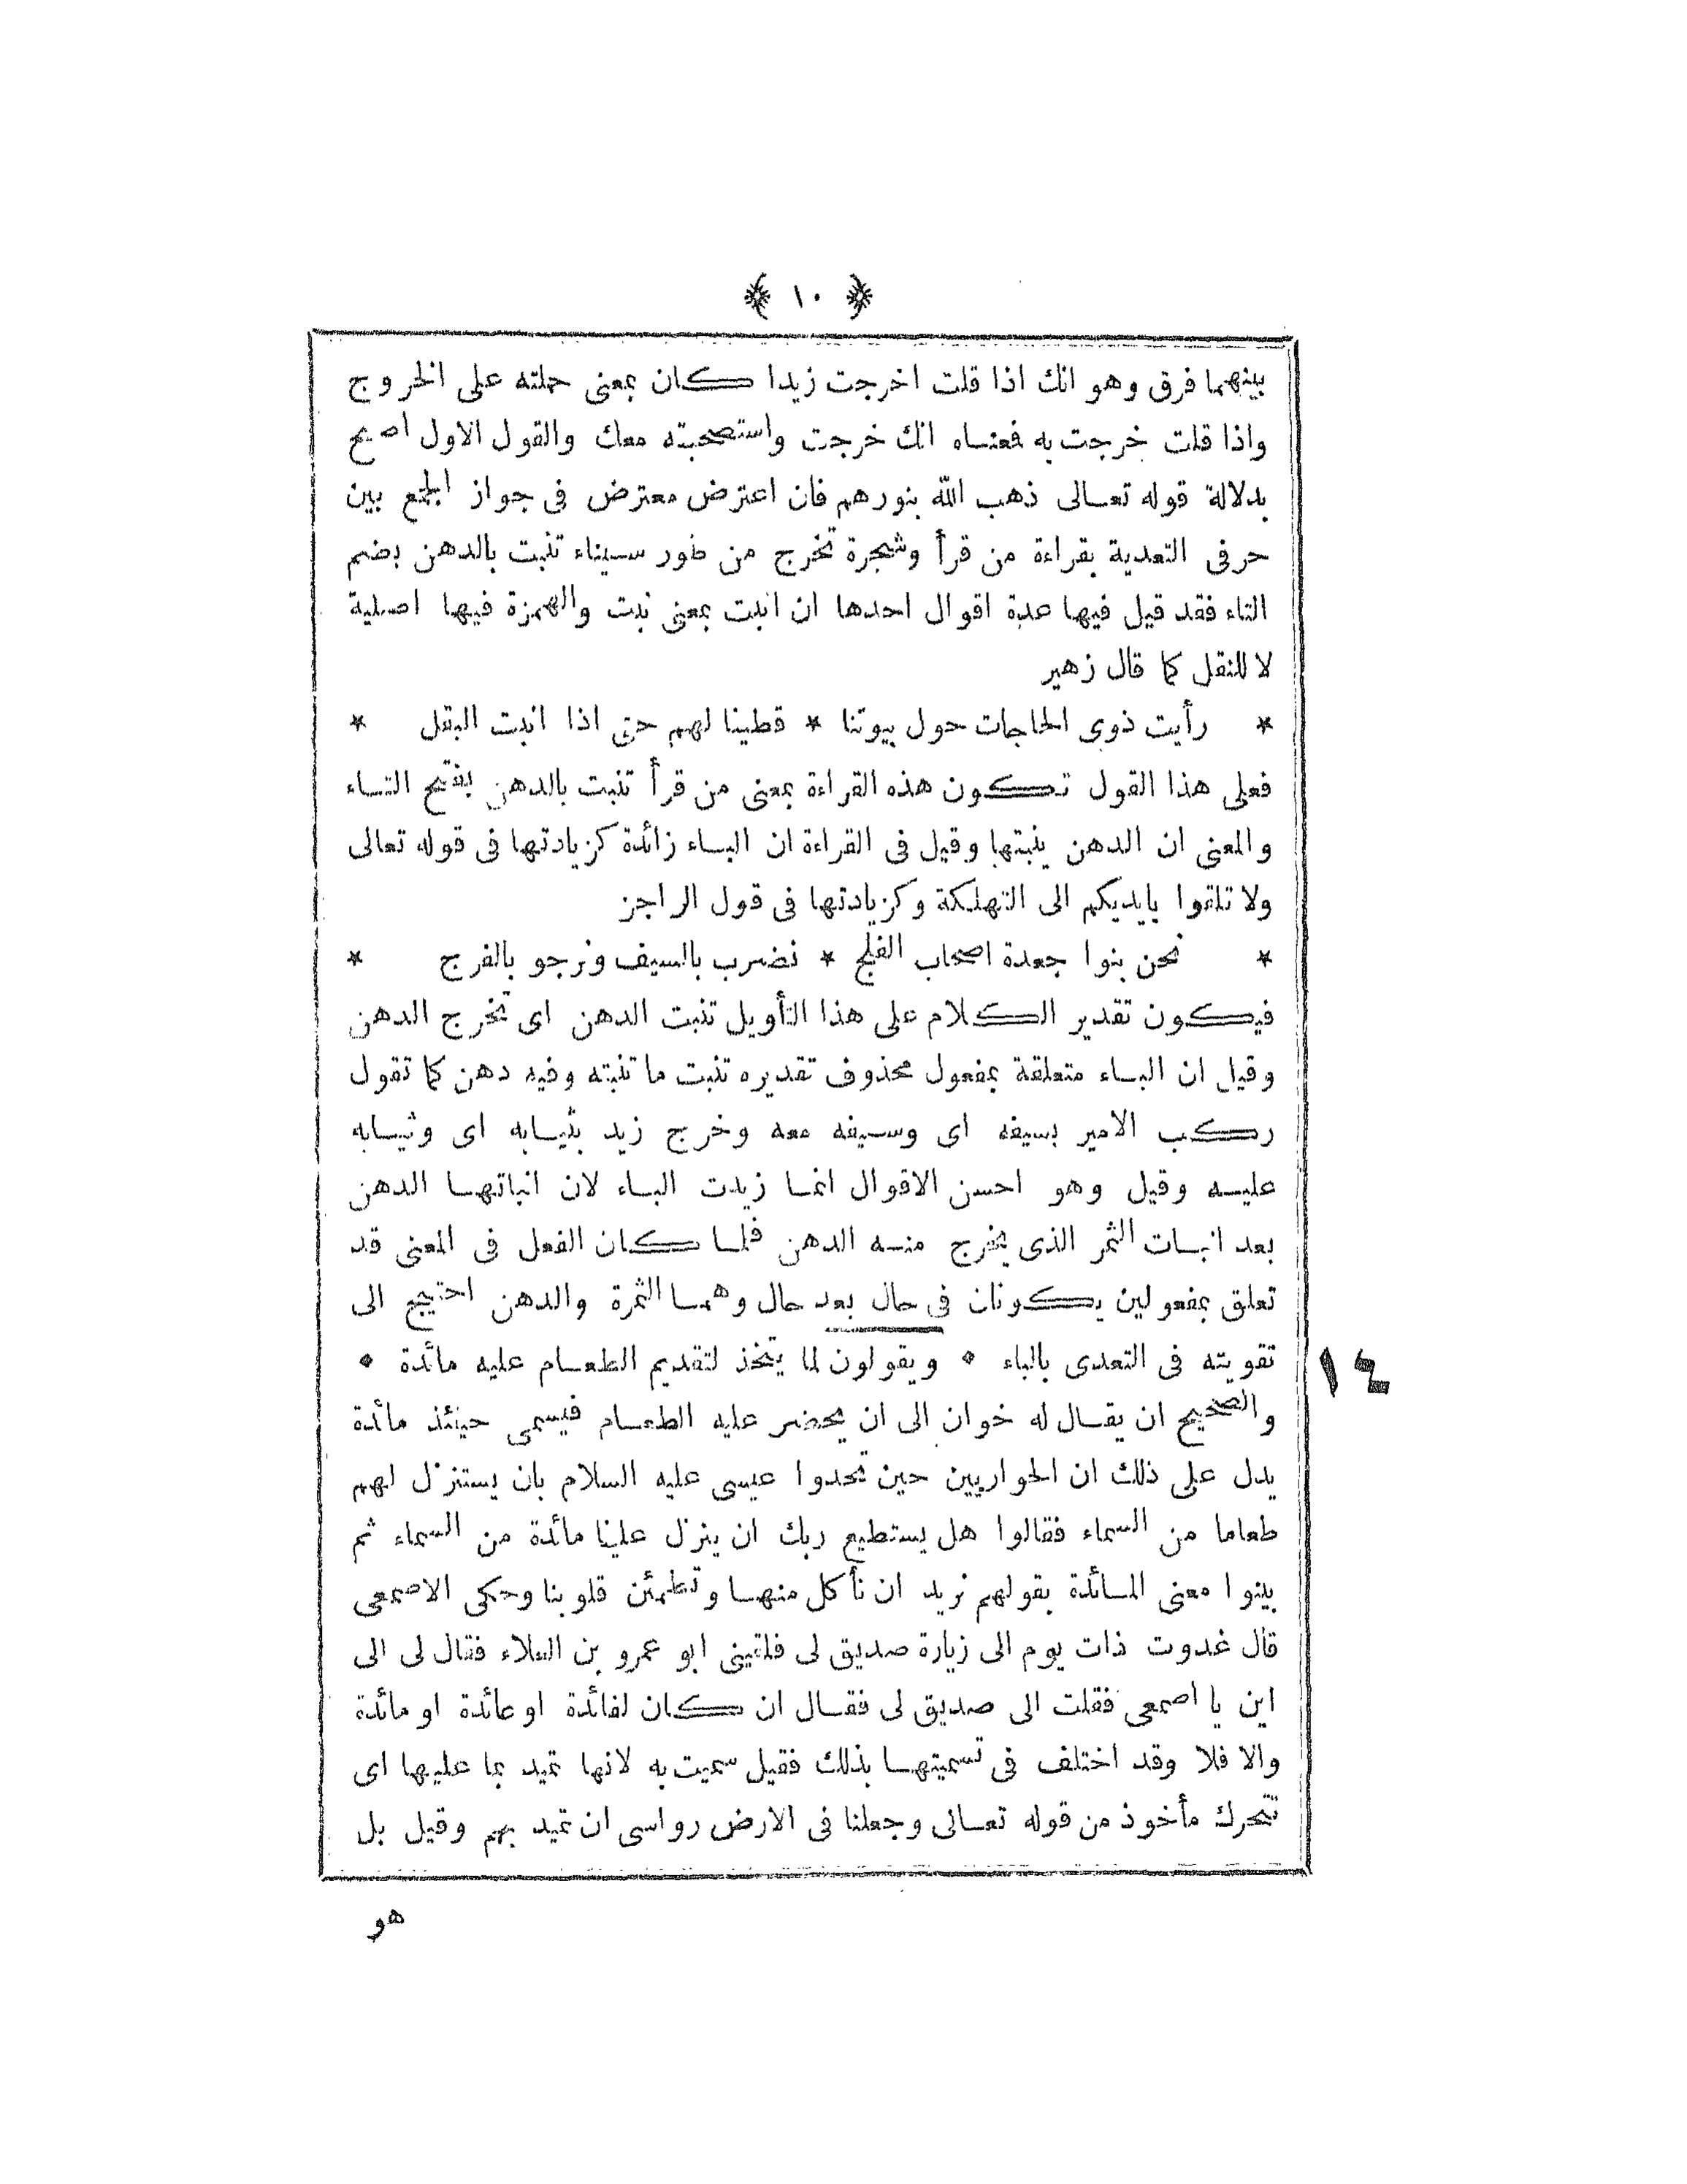 ﴿ ١٠ ﴾
بينهما فرق وهو انك اذا قلت اخرجت زيدا كان بمعنى حملته على الخروج
واذا قلت خرجت به فمعناه انك خرجت واستصحبته معك والقول الاول اصح
بدلالة قوله تعالى ذهب الله بنورهم فان اعترض معترض فى جواز الجمع بين
حرفى التعدية بقراءة من قرأ وشجرة تخرج من طور سيناء تنبت بالدهن بضم
التاء فقد قيل فيها عدة اقوال احدها ان انبت بمعنى نبت والهمزة فيها اصلية
لا للنقل كما قال زهير
* رأيت ذوى الحاجات حول بيوتنا * قطينا لهم حتى اذا انبت البقل *
فعلى هذا القول تكون هذه القراءة بمعنى من قرأ تنبت بالدهن بفتح التاء
والمعنى ان الدهن ينبتها وقيل فى القراءة ان الباء زائدة كزيادتها فى قوله تعالى
ولا تلقوا بايديكم الى التهلكة وكزيادتها فى قول الراجز
* نحن بنوا جعدة اصحاب الفلج * نضرب بالسيف ونرجو بالفرج *
فيكون تقدير الكلام على هذا التأويل تنبت الدهن اى تخرج الدهن
وقيل ان الباء متعلقة بمفعول محذوف تقديره تنبت ما تنبته وفيه دهن كما تقول
ركب الامير بسيفه اى وسيفه معه وخرج زيد بثيابه اى وثيابه
عليه وقيل وهو احسن الاقوال انما زيدت الباء لان انباتها الدهن
بعد انبات الثمر الذى يخرج منه الدهن فلما كان الفعل فى المعنى قد
تعلق بمفعولين يكونان فى حال بعد حال وهما الثمرة والدهن احتيج الى
تقويته فى التعدى بالباء • ويقولون لما يتخذ لتقديم الطعام عليه مائدة •
١٤
والصحيح ان يقال له خوان الى ان يحضر عليه الطعام فيسمى حينئذ مائدة
يدل على ذلك ان الحواريين حين تحدوا عيسى عليه السلام بان يستنزل لهم
طعاما من السماء فقالوا هل يستطيع ربك ان ينزل علينا مائدة من السماء ثم
بينوا معنى المائدة بقولهم نريد ان نأكل منها وتطمئن قلوبنا وحكى الاصمعى
قال غدوت ذات يوم الى زيارة صديق لى فلقينى ابو عمرو بن العلاء فقال لى الى
اين يا اصمعى فقلت الى صديق لى فقال ان كان لفائدة او عائدة او مائدة
والا فلا وقد اختلف فى تسميتها بذلك فقيل سميت به لانها تميد بما عليها اى
تتحرك مأخوذ من قوله تعالى وجعلنا فى الارض رواسى ان تميد بهم وقيل بل
هو